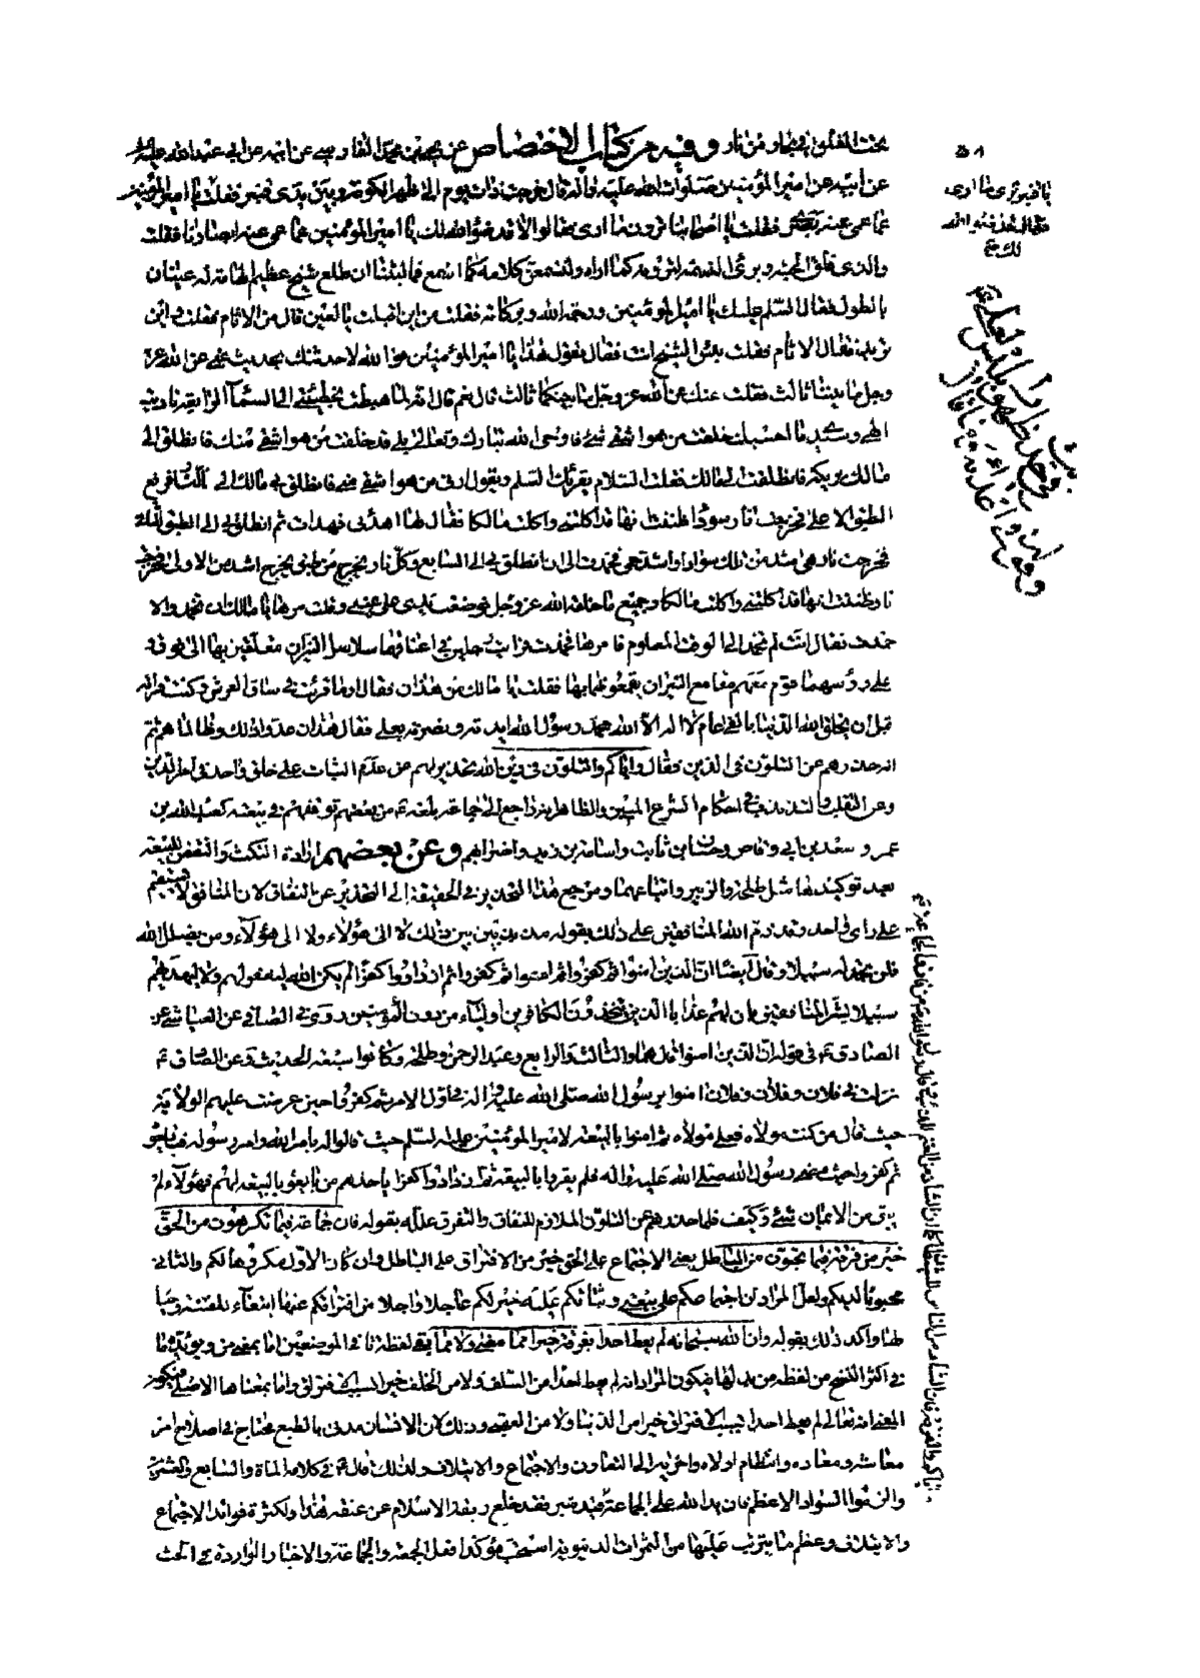 تحت المفلق في بحار من نار وفيه من كتاب الاختصاص عن عن ابيه عن ابي عبد الله عليه
عن ابيه عن امير المؤمنين صلوات الله عليه وآله قال خرجت ذات يوم الى ظهر الكوفة وبين يدي قنبر فقلت يا امير المؤمنين
عما عمي عنه فقلت يا اصحابنا ترون ما ارى فقالوا لا قد ضوّ الله لك يا امير المؤمنين عما عمي عنه ابصارنا فقلت
والذي فلق الحبة وبرئ النسمة لترونه كما اراه ولتسمعن كلامه كما اسمع فما لبثنا ان طلع شيخ عظيم الهامة له عينان
بالطول فقال السلم عليك يا امير المؤمنين ورحمة الله وبركاته فقلت من اين اقبلت يا لعين قال من الاثام فقلت واين
تريد فقال الاثام فقلت بئس الشيخ انت فقال تقول هذا يا امير المؤمنين فوالله لاحدثنك بحديث عني عن الله عز
وجل ما بيننا ثالث فقلت عنك عن الله عز وجل ما بينكما ثالث قال نعم قال انه لما هبطت بخطيئتي الى السماء الرابعة ناديت
الهي وسيدي ما احسبك خلقت من هو اشقى مني فاوحى الله تبارك وتعالى بلى قد خلقت من هو اشقى منك فانطلق الى
مالك يريكه فانطلقت الى مالك فقلت السلام يقرئك السلم ويقول ارني من هو اشقى مني فانطلق بي مالك الى النار فرفع
الطبق الاعلى فخرجت نار سوداء ظننت انها قد اكلتني واكلت مالكا فقال لها اهدئي فهدات ثم انطلق بي الى الطبق الثاني
فخرجت نار هي اشد من تلك سوادا واشد حمى فخمدت الى ان انطلق بي الى السابع وكل نار يخرج من طبق يخرج اشد من الاولى فخرج
نار ظننت انها قد اكلتني واكلت مالكا وجميع ما خلقه الله عز وجل فوضعت يدي على عيني وقلت مرها يا مالك ان تخمد والا
خمدت فقال انت لم تخمد الى الوقت المعلوم فامرها فخمدت فرايت رجلين في اعناقهما سلاسل النيران معلقين بها الى فوق و
على رؤسهما قوم معهم مقامع النيران يقمعونهما بها فقلت يا مالك من هذان فقال اوما قرئت في ساق العرش وكنت قراته
قبل ان يخلق الله الدنيا بالفي عام لا اله الا الله محمد رسول الله ايدته ونصرته بعلي فقال هذان عدوا ذلك وظالما هم ثم
انه حذرهم عن التلون في الدين فقال واياكم والتلون في دين الله تحذير لهم عن عدم الثبات على خلق واحد في امر الدين
وعن التقلب والتذبذب في احكام الشرع المبين والظاهر انه راجع الى جماعة بلغه عن بعضهم توقفهم في بيعته كعبد الله بن
عمر وسعد بن ابي وقاص وحسان بن ثابت واسامة بن زيد واضرابهم وعن بعضهم ارادة النكث والنقض للبيعة
بعد توكيدها مثل طلحة والزبير واتباعهما ومرجع هذا التحذير في الحقيقة الى التحذير عن النفاق لان المنافق لا يستقيم
على راي واحد وقد ذم الله المنافقين على ذلك بقوله مذبذبين بين ذلك لا الى هؤلاء ولا الى هؤلاء ومن يضلل الله
فلن تجد له سبيلا وقال ايضا ان الذين امنوا ثم كفروا ثم امنوا ثم كفروا ثم ازدادوا كفرا لم يكن الله ليغفر لهم ولا ليهديهم
سبيلا بشر المنافقين بان لهم عذابا الذين يتخذون الكافرين اولياء من دون المؤمنين روى في الصافي عن العياشي عن
الصادق ع في قوله ان الذين امنوا قال هما والثالث والرابع وعبد الرحمن وطلحة وكانوا سبعة الحديث وعن الصادق ع
نزلت في فلان وفلان وفلان امنوا برسول الله صلى الله عليه وآله في اول الامر ثم كفروا حين عرضت عليهم الولاية
حيث قال من كنت مولاه فعلي مولاه ثم امنوا بالبيعة لامير المؤمنين عليه السلم حيث قالوا له بامر الله وامر رسوله فبايعوه
ثم كفروا حيث مضى رسول الله صلى الله عليه واله فلم يقروا بالبيعة ثم ازدادوا كفرا باخذهم من بايعوه بالبيعة لهم فهؤلاء لم
يبق من الايمان شئ وكيف فلما حذرهم عن التلون الملازم للنفاق والتفرق علله بقوله فان جماعة فيما تكرهون من الحق
خير من فرقة فيما تحبون من الباطل يعني الاجتماع على الحق خير من الافتراق على الباطل وان كان الاول مكروها لكم والثاني
محبوبا لديكم ولعل المراد ان اجتماعكم على بيعتي وثباتكم عليه خير لكم عاجلا واجلا من افتراقكم عنها ابتغاء للفتنة وحبا
لها واكد ذلك بقوله وان الله سبحانه لم يعط احدا بفرقة خيرا مما مضى ولا مما بقي لفظة ما في الموضعين اما بمعنى من ويؤيده ما
في اكثر النسخ من لفظه من بدلها فيكون المراد انه لم يعط احدا من السلف ولا من الخلف خيرا بسبب الافتراق واما بمعناها الاصلي فيكون
المعنى انه تعالى لم يعط احدا بسبب الافتراق خيرا من الدنيا ولا من العقبى وذلك لان الانسان مدني بالطبع محتاج في اصلاح امر
معاشه ومعاده وانتظام اولاه واخريه الى التعاون والاجتماع والايتلاف ولذلك قال ع في كلامه المأة والسابع والعشرين
والزموا السواد الاعظم فان يد الله على الجماعة قيد شبر فقد خلع ربقة الاسلام عن عنقه هذا ولكثرة فوائد الاجتماع
والايتلاف وعظم ما يترتب عليها من الثمرات الدنيوية استحب مؤكدا فعل الجمعة والجماعة والاخبار الواردة في الحث
يا قنبر ترى ما ارى
فقال
لك